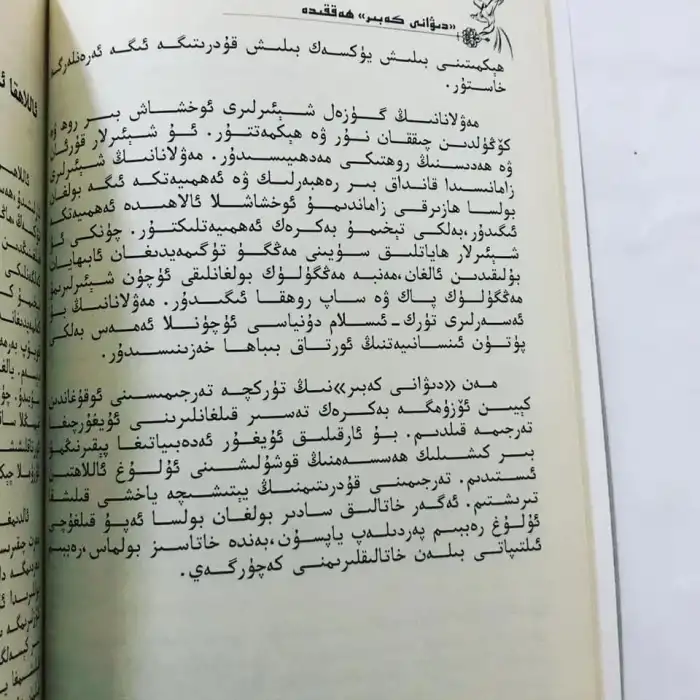 «دىۋانى كەبىر» ھەققىدە
ھېكمىتىنى بىلىش يۈكسەك بىلىش قۇدرىتىگە ئىگە ئەرەنلەرگە
خاستۇر.
مەۋلانانىڭ گۈزەل شېئىرلىرى ئوخشاش بىر روھ ۋە
كۆڭۈلدىن چىققان نۇر ۋە ھېكمەتتۇر. ئۇ شېئىرلار قۇرئان
ۋە ھەدىسنىڭ روھتىكى مەدھىيىسىدۇر. مەۋلانانىڭ شېئىرلىرى
زامانىسىدا قانداق بىر رەھبەرلىك ۋە ئەھمىيەتكە ئىگە بولغان
بولسا ھازىرقى زاماندىمۇ ئوخشاشلا ئالاھىدە ئەھمىيەتكە
ئىگىدۇر، بەلكى تېخىمۇ بەكرەك ئەھمىيەتلىكتۇر. چۈنكى ئۇ
شېئىرلار ھاياتلىق سۈيىنى مەڭگۈ تۈگىمەيدىغان ئابىھايان
بۇلىقىدىن ئالغان، مەنبە مەڭگۈلۈك بولغانلىقى ئۈچۈن شېئىرلىرىمۇ
مەڭگۈلۈك پاك ۋە ساپ روھقا ئىگىدۇر. مەۋلانانىڭ بۇ
ئەسەرلىرى تۈرك - ئىسلام دۇنياسى ئۈچۈنلا ئەمەس بەلكى
پۈتۈن ئىنسانىيەتنىڭ ئورتاق بىباھا خەزىنىسىدۇر.
مەن «دىۋانى كەبىر»نىڭ تۈركچە تەرجىمىسىنى ئوقۇغاندىن
كېيىن ئۆزۈمگە بەكرەك تەسىر قىلغانلىرىنى ئۇيغۇرچىغا
تەرجىمە قىلدىم. بۇ ئارقىلىق ئۇيغۇر ئەدەبىياتىغا پېقىرنىڭمۇ
بىر كىشىلىك ھەسسەمنىڭ قوشۇلىشىنى ئۇلۇغ ئاللاھتىن
ئىستىدىم. تەرجىمىنى قۇدرىتىمنىڭ يېتىشىچە ياخشى قىلىشقا
تىرىشتىم. ئەگەر خاتالىق سادىر بولغان بولسا ئەپۇ قىلغۇچى
ئۇلۇغ رەببىم پەردىلەپ ياپسۇن، بەندە خاتاسىز بولماس، رەببىم
ئىلتىپاتى بىلەن خاتالىقلىرىمنى كەچۈرگەي.